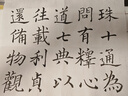 珠問道往還
十有七載備
通釋典利物
為心以貞觀